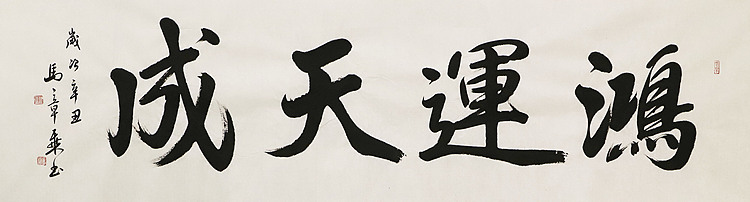 鴻運天成
歲次辛丑
馬章乘书